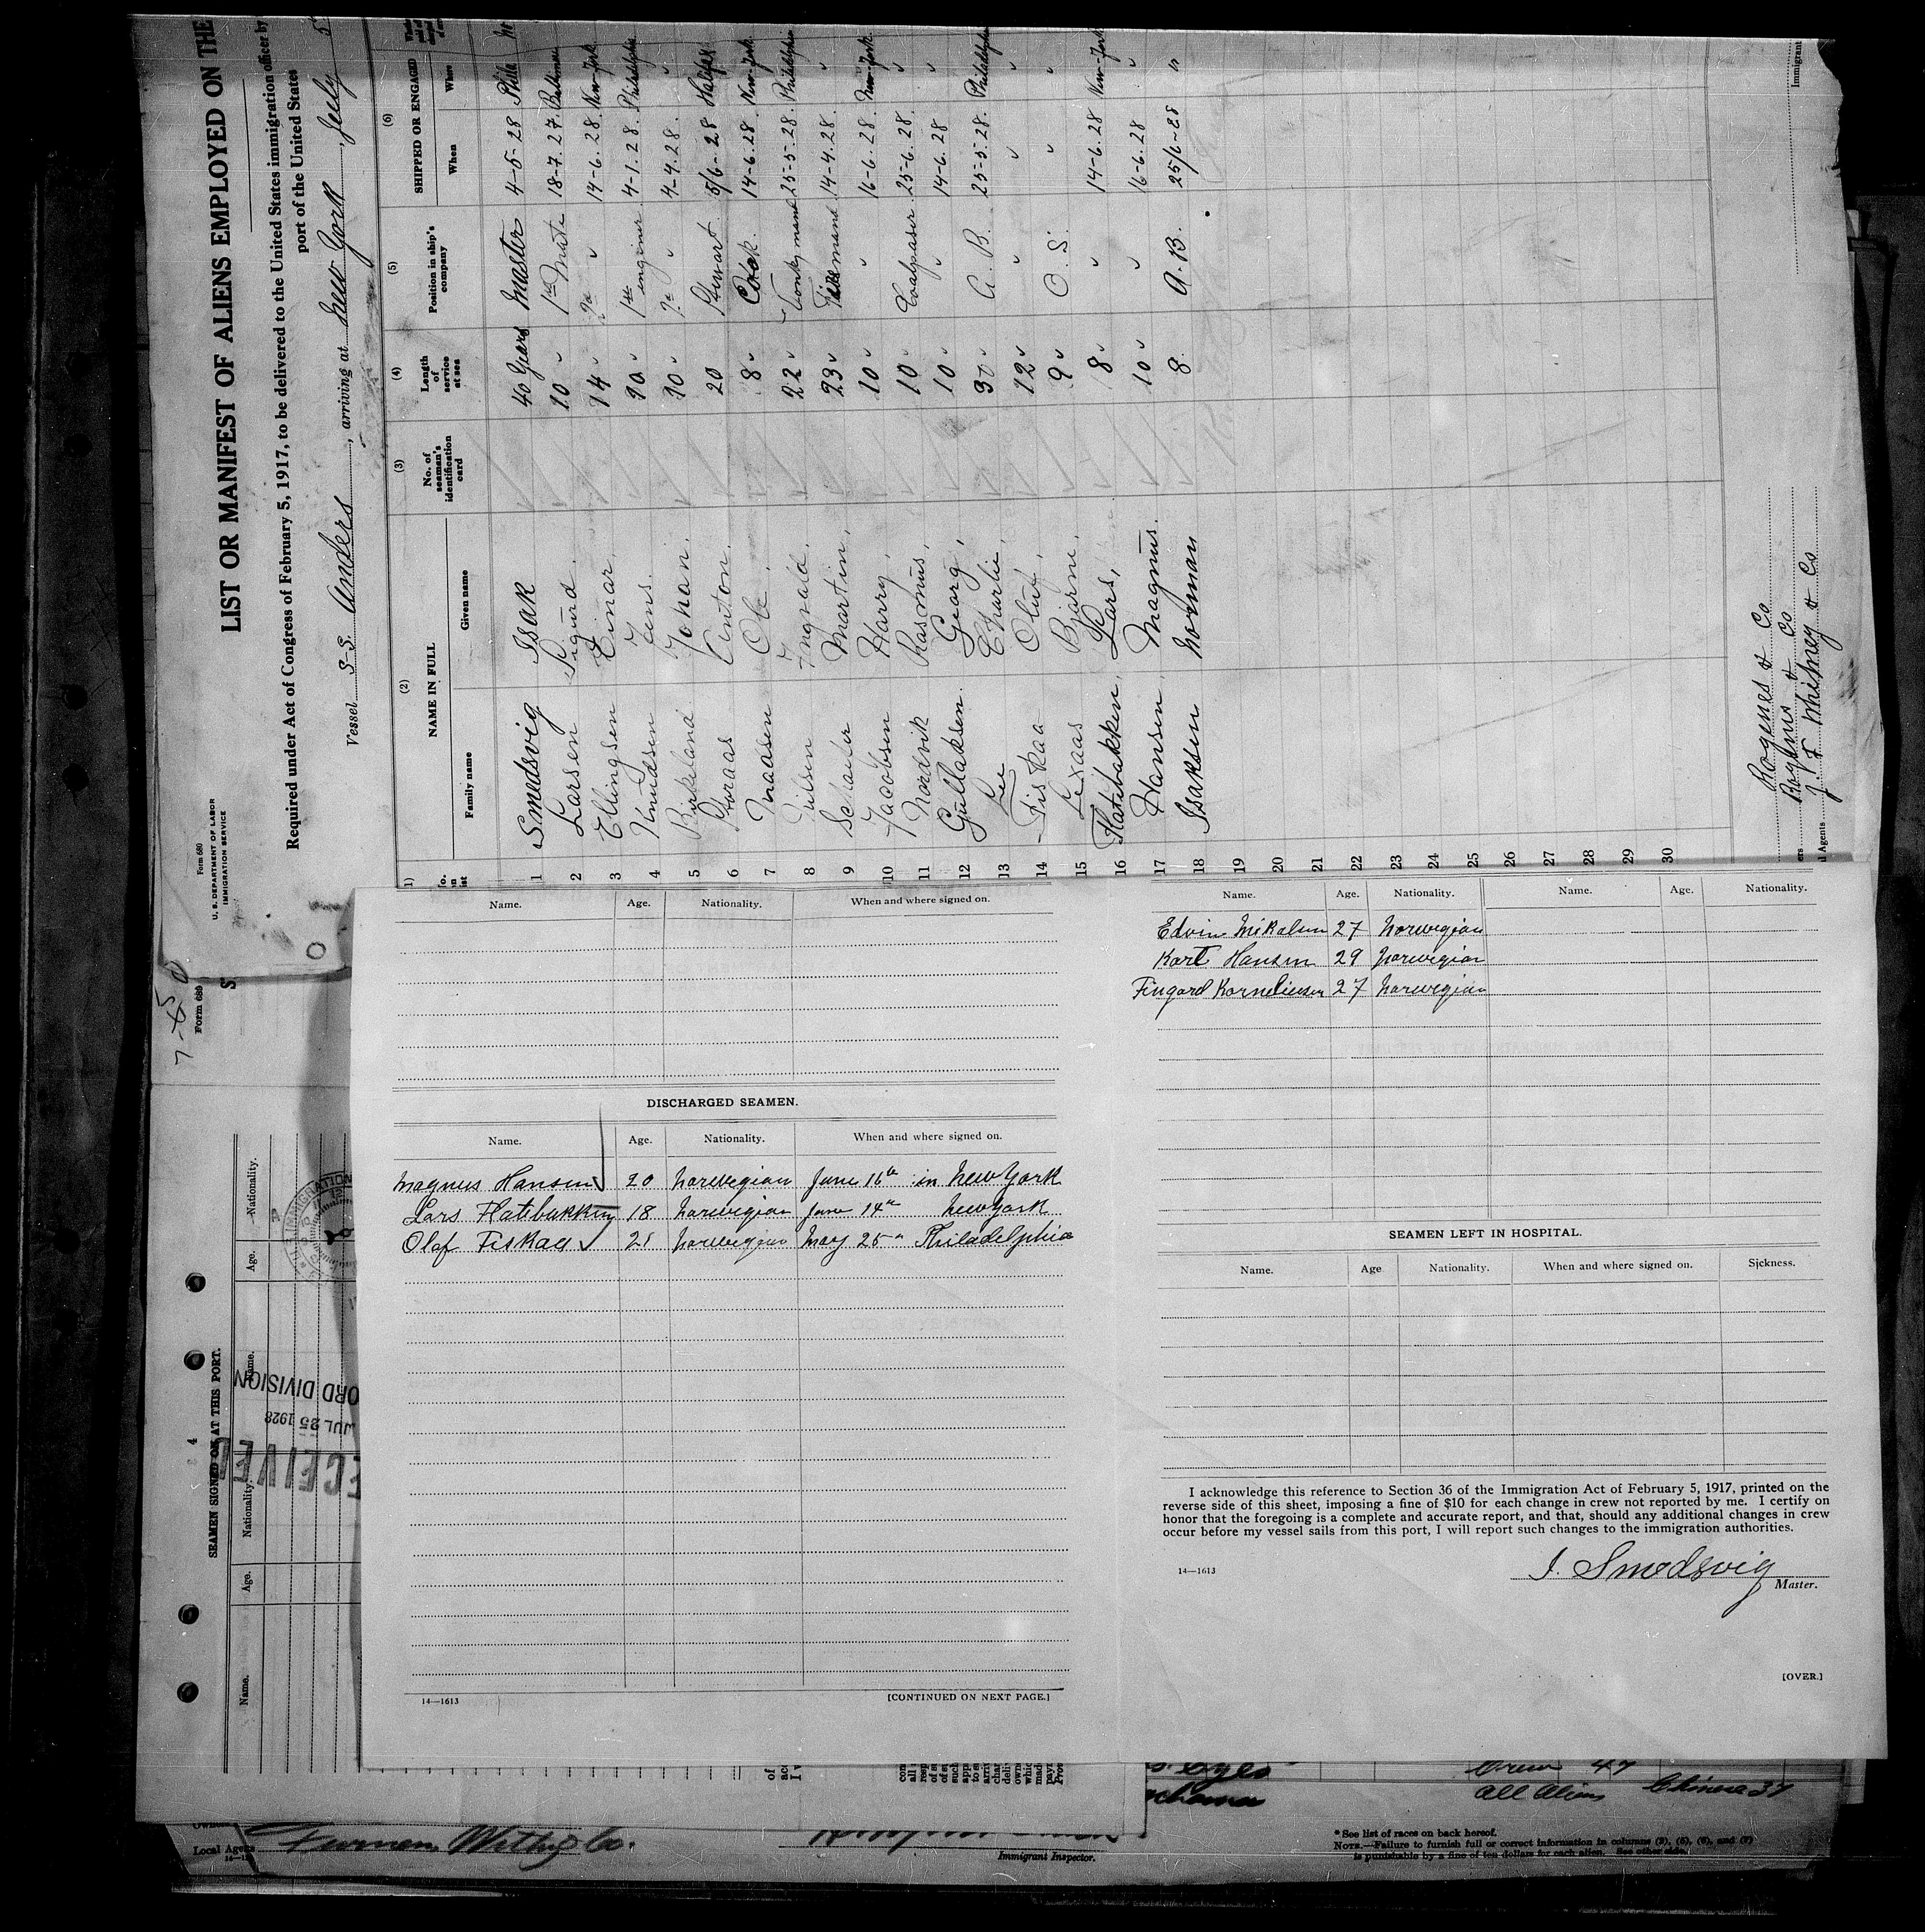 Form 680
U. S. DEPARTMENT OF LABOR
IMMIGRATION SERVICE
LIST OR MANIFEST OF ALIENS EMPLOYED ON THE
Required under Act of Congress of February 5, 1917, to be delivered to the United States immigration officer by
port of the United States
Vessel S.S. Anders, arriving at New York, July 5
(2) (3) (4) (5) (6)
NAME IN FULL
Family name Given name
No. of seaman's identification card
Length of service at sea
Position in ship's company
SHIPPED OR ENGAGED
When Where
1 Smedsvig Isak 40 Years Master 4-5-28 Phila
2 Larsen Sigurd. 10 " 1st Mate 18-7.27. Baltimore
3 Ellingsen Einar. 14 " 2d " 14-6.28. New-York
4 Knudsen Jens. 20 " 1st enginer 4-1.28. Philadelphia
5 Birkeland Johan. 10 " 2d " 4-4.28. "
6 Anton. 20 Stuart 5/6-28 Halifax
7 Ole. 8 " Cook. 14-6.28. New-York
8 Ingvald. 22 " Donkeymand 25-5-28. Philadelphia
9 Martin, 23 " Firemand 14-4.28. "
10 Jacobsen Harry, 10 " " 16-6.28. New-York
11 Nordvik Rasmus, 10 " Coalpaser 25-6.28. "
12 Gullaksen. Georg, 10 " " 14-6.28 "
13 Lee Charlie, 30 " A. B. 25-5.28. Philadelphia
14 Fiskaa Oluf, 12 " " " "
15 Bjarne, 9 " O. S. " "
16 Flatebakken, Lars, 8 " " 14-6.28 New-York
17 Hansen, Magnus. 10 " " 16-6.28 "
18 Isaksen Norman 8. A.B. 25/6-28 "
19
20
21
22
23
24
25
26
27
28
29
30
Rogenes & Co
Rogenes & Co
J F Whitney & Co
Form 689
SEAMEN SIGNED ON AT THIS PORT.
Name. Age. Nationality. Name. Age. Nationality.
JUL 25 1928
ORD DIVISION
Name. Age. Nationality. When and where signed on.
DISCHARGED SEAMEN.
Name. Age. Nationality. When and where signed on.
Magnus Hansen 20 Norwegian June 16th in New York
Lars Flatebakken 18 Norwegian June 14th New York
Olaf Fiskaa Norwegian May 25th Philadelphia
14—1613 [CONTINUED ON NEXT PAGE.]
Name. Age. Nationality. Name. Age. Nationality.
Edvin Mikalsen 27 Norwegian
Karl Hansen 29 Norwegian
Fingard Korneliussen 27 Norwegian
SEAMEN LEFT IN HOSPITAL.
Name. Age Nationality. When and where signed on. Sickness.
I acknowledge this reference to Section 36 of the Immigration Act of February 5, 1917, printed on the
reverse side of this sheet, imposing a fine of $10 for each change in crew not reported by me. I certify on
honor that the foregoing is a complete and accurate report, and that, should any additional changes in crew
occur before my vessel sails from this port, I will report such changes to the immigration authorities.
14—1613
I. Smedsvig
Master.
[OVER.]
Crew 47
All Aliens Chinese 37
Local Agents Furness, Withy & Co.
Immigrant Inspector.
* See list of races on back hereof.
NOTE.—Failure to furnish full or correct information in columns (2), (5), (6), and (7)
is punishable by a fine of ten dollars for each alien. See other side.